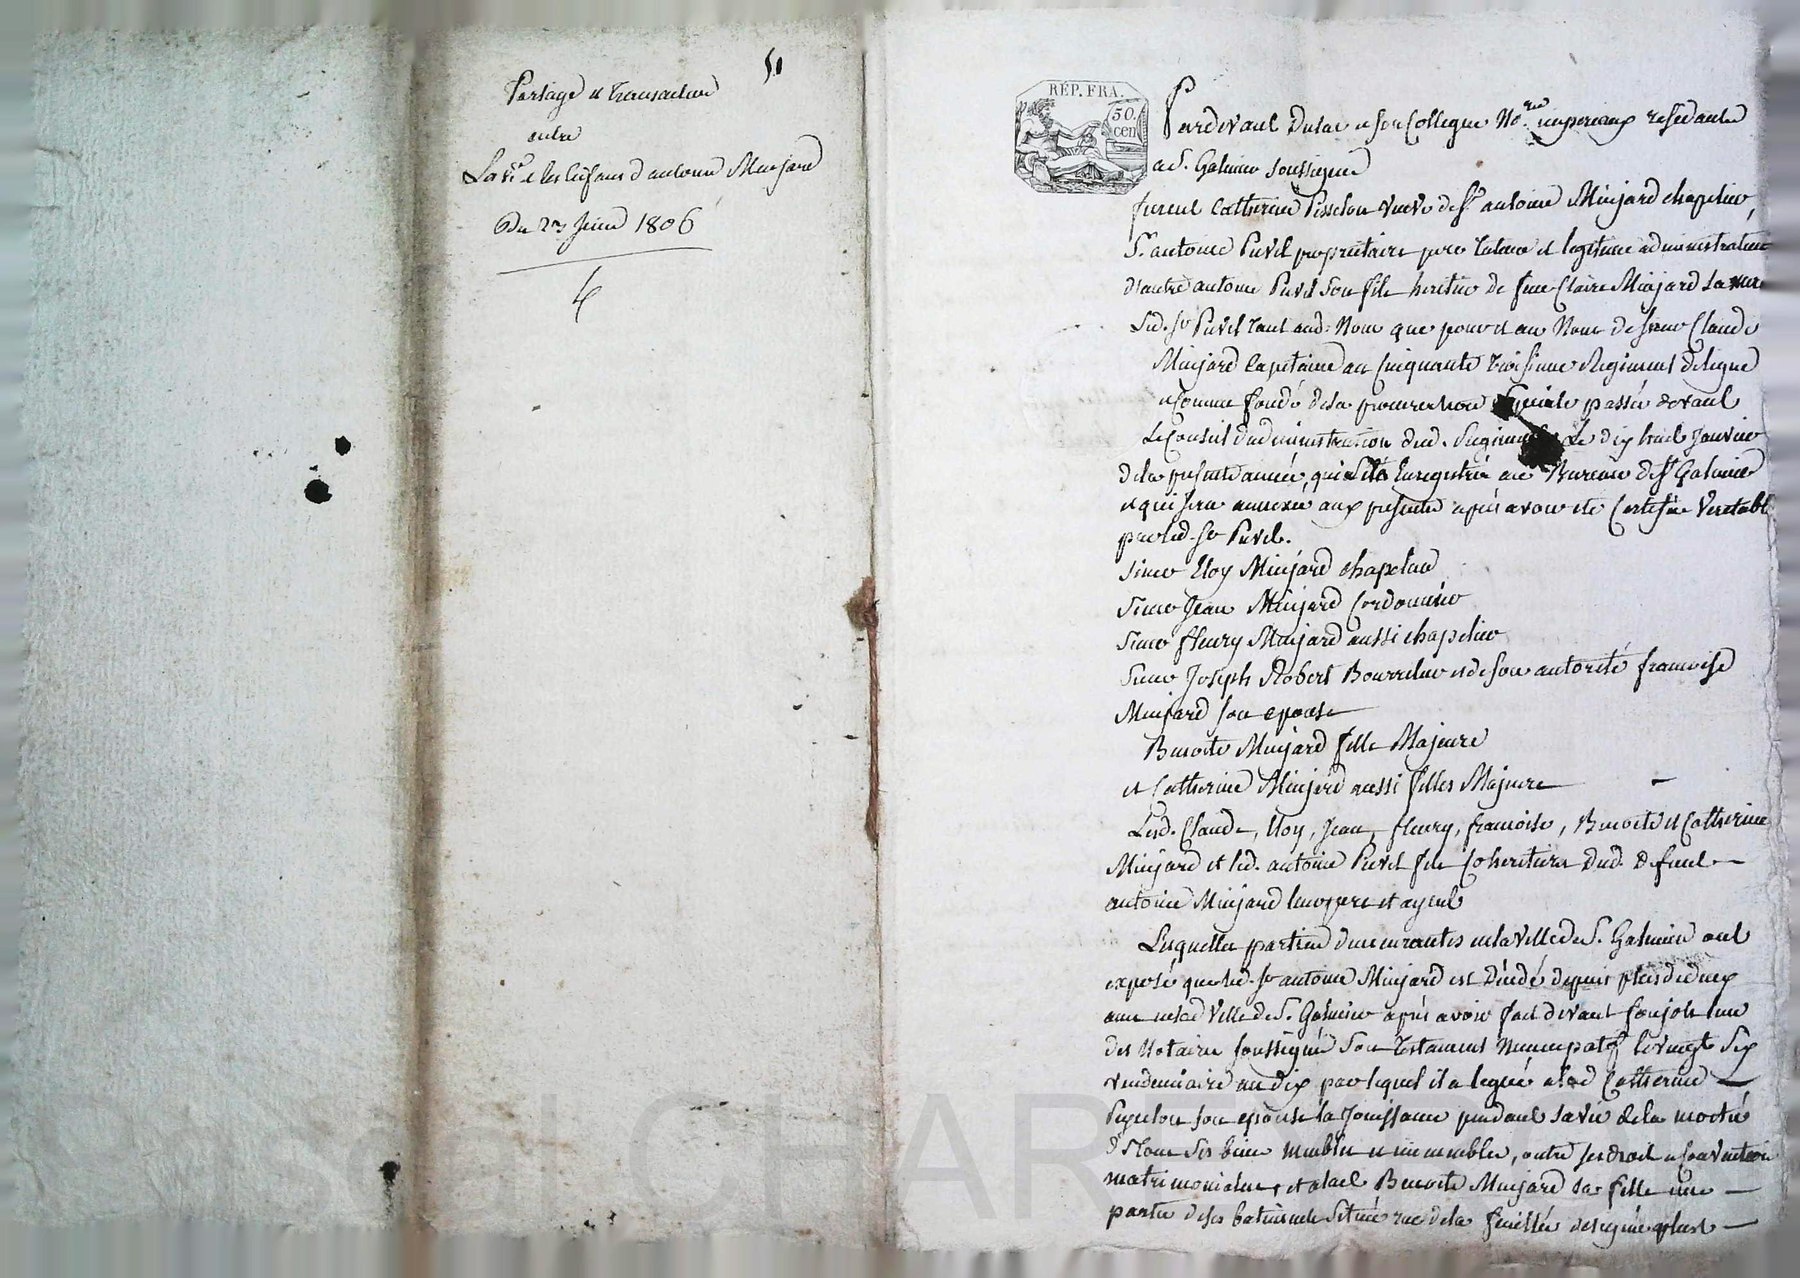 51
Partage et transaction
entre
La ve et les enfans d'antoine Minjard
Du 23 Juin 1806
RÉP. FRA.
50.
cen
Pardevant Dulac et son Collegue Nores imperiaux residants
a St. Galmier soussignés
furent Catherine Pisselou veuve de sr antoine Minjard chapelier,
Sr. antoine Puvel proprietaire pere tuteur et legitime administrateur
d'autre antoine Puvel son fils heritier de feue Claire Minjard sa mere
Led. sr Puvel tant aud. Nom que pour et au Nom de sieur Claude
Minjard Capitaine au Cinquante troisieme Regiment de ligne
et comme fondé de sa procuration speciale passée devant
le Conseil d'administration dud. Regiment le dix huit Janvier
de la presente année, qui a été Enregistrée au Bureau de St Galmier
et qui sera annexée aux presentes après avoir été Certifiée Veritable
par led. sr Puvel.
sieur Eloy Minjard chapelier
sieur Jean Minjard Cordonnier
sieur fleury Minjard aussi chapelier
sieur Joseph Robert Bourrelier et de son autorité francoise
Minjard son epouse
Benoite Minjard fille Majeure
et Catherine Minjard aussi filles Majeure
Lesd. Claude, Eloy, Jean, fleury, francoise, Benoite et Catherine
Minjard et led. antoine Puvel fils Coheritiers dud. defunt
antoine Minjard leur pere et ayeul
Lesquelles parties demeurantes en la ville de St. Galmier ont
exposé que led. sr antoine Minjard est Décédé depuis plus de deux
ans en lad. Ville de St. Galmier après avoir fait devant l'un
des Notaires soussignés son testament Nuncupatif le vingt six
vendemiaire an dix par lequel il a legué a lad. Catherine
Pisselou son epouse la Jouissance pendant sa vie de la moitié
de tous ses biens meubles et immeubles, outre ses droits et Conventions
matrimoniales, et a lad. Benoite Minjard sa fille une
partie de ses batiments situés rue de la feuillée designée plus